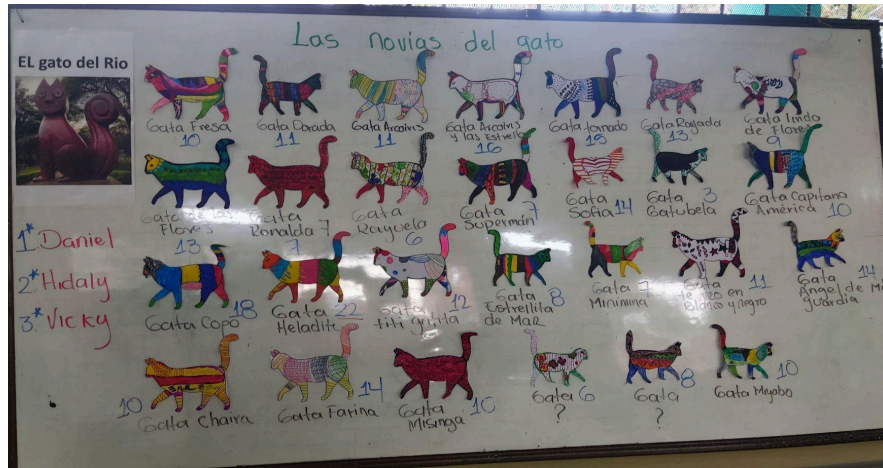 Las novias del gato
EL gato del Rio
Gata Fresa
10
Gata Dorada
11
Gata Arcoiris
11
Gata Arcoiris
y las Estrellas
16
Gata tornado
Gata Rayada
13
Gata lindo
de Flores
9
Gata de las
Flores
13
Gata
Ronalda 7
7
Gata
Rayuela
6
Gata
Supermán
7
Gata
Sofia 14
Gata
Gatubela
3
Gata Capitana
América 10
1* Daniel
2* Hidaly
3* Vicky
Gata Copo
18
Gata
Heladito
22
Gata
titi gritta
12
Gata
Estrellita
de Mar
8
Gata
Minimina
7
Gata
en
Blanco y negro
11
Gata
Angel de Mi
guardia
14
Gata Chaira
10
Gata Farina
14
Gata
Misinga
10
Gata 6
?
Gata
?
8
Gata Miyobo
10